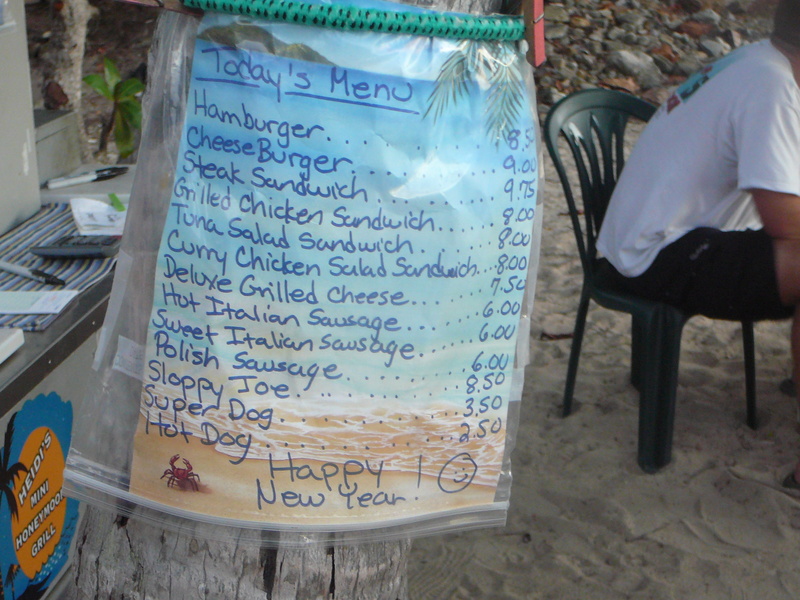 Today's Menu
Hamburger... 8.5
CheeseBurger... 9.00
Steak Sandwich... 9.75
Grilled Chicken Sandwich... 8.00
Tuna Salad Sandwich... 8.00
Curry Chicken Salad Sandwich... 8.00
Deluxe Grilled Cheese... 7.50
Hot Italian Sausage... 6.00
Sweet Italian Sausage... 6.00
Polish Sausage... 6.00
Sloppy Joe... 8.50
Super Dog... 3.50
Hot Dog... 2.50
Happy
New Year!
HEIDI'S
MINI
HONEYMOON
GRILL